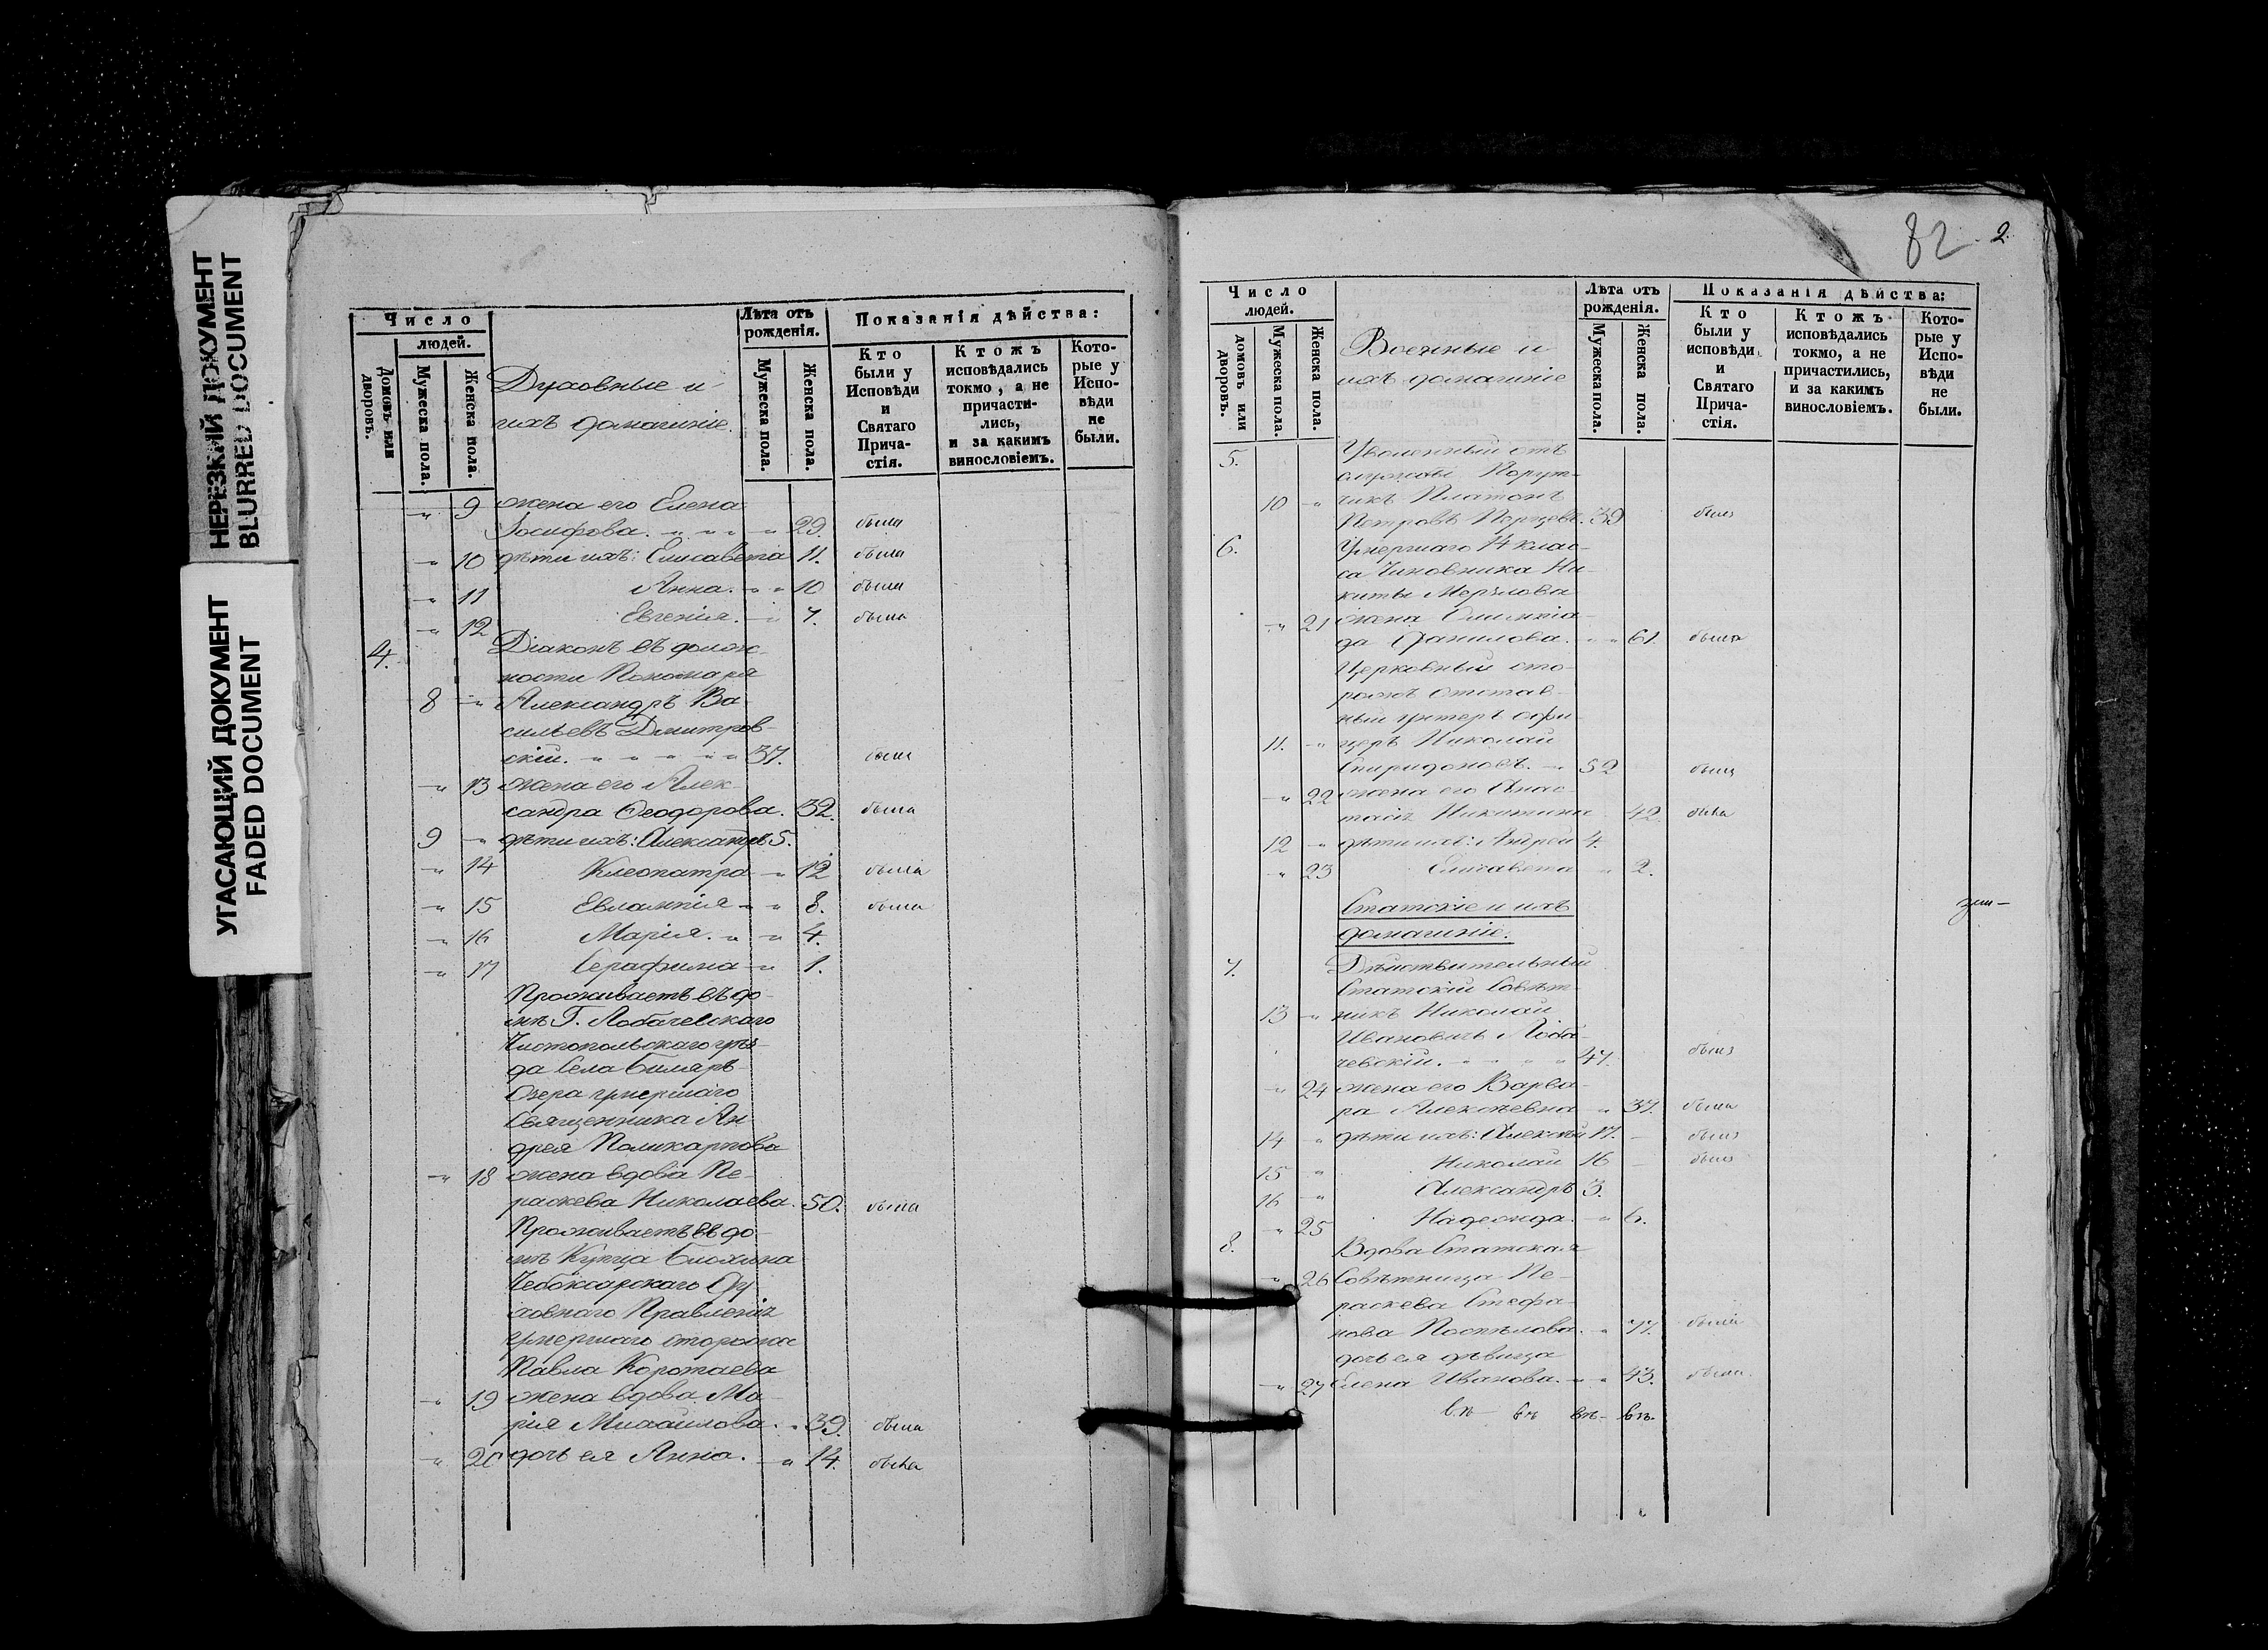 НЕРЕЗКИЙ ДОКУМЕНТ
BLURRED DOCUMENT
УГАСАЮЩИЙ ДОКУМЕНТ
FADED DOCUMENT
Число
людей.
Домовъ или дворовъ.
Мужеска пола.
Женска пола.
Духовные и
ихъ домашніе.
Лѣта отъ рожденія.
Мужеска пола.
Женска пола.
Показанія дѣйства:
Кто были у Исповѣди и Святаго Причастія.
Ктожъ исповѣдались токмо, а не причастились, и за какимъ винословіемъ.
Которые у Исповѣди не были.
" 9 жена его Елена
Іосифова. " " " " 29. была
" 10 дѣти ихъ: Елисавета 11. была
" 11 Анна. " " 10 была
" 12 Евгенія. " 7. была
4. Діаконъ въ долж-
ности Пономаря
8 " Александръ Ва-
сильевъ Димитров-
скій. " " " " " 37. былъ
" 13 жена его Алек-
сандра Ѳеодорова. 32. была
9 " дѣти ихъ: Александръ 5.
" 14 Клеопатра " 12 была
" 15 Евлампія " " 8. была
" 16 Марія. " " 4.
" 17 Серафима " 1.
Проживаетъ въ до-
мѣ Г. Лобачевскаго
Чистопольскаго уѣз-
да Села Биляръ
Озера умершаго
Священника Ан-
дрея Поликарпова
" 18 жена вдова Пе-
раскева Николаева. 50. была
Проживаетъ въ до-
мѣ Купца Блохина
Чебоксарскаго Ду-
ховнаго Правленія
умершаго сторожа
Павла Коротаева
" 19 жена вдова Ма-
рія Михайлова. " 39. была
" 20 дочь ея Анна. " 14. была
82 2.
Число
людей.
домовъ или дворовъ.
Мужеска пола.
Женска пола.
Военные и
ихъ домашніе
Лѣта отъ рожденія.
Мужеска пола.
Женска пола.
Показанія дѣйства:
Кто были у исповѣди и Святаго Причастія.
Ктожъ исповѣдались токмо, а не причастились, и за какимъ винословіемъ.
Которые у Исповѣди не были.
5. Уволенный отъ
службы Поруч-
10 " чикъ Платонъ
Петровъ 39 былъ
6. Умершаго 14 клас-
са Чиновника Ни-
киты Мерзлова
" 21 жена Олимпіа-
да Данилова. " " 61. была
Церковный сто-
рожъ отстав-
ный унтеръ офи-
11. " церъ Николай
Спиридоновъ. " 52 былъ
" 22 жена его Анас-
тасія Никитина 42. была
12 " дѣти ихъ: Андрей 4.
" 23 Елисавета " 2.
Статскіе и ихъ
домашніе.
7. Дѣйствительный
Статскій Совѣт-
13 " никъ Николай
Ивановичъ Лоба-
чевскій. " " " " 47. былъ
" 24 жена его Варва-
ра Алексѣевна " 37. была
14 " дѣти ихъ: Алексѣй 17. былъ
15 " Николай 16 былъ
16 " Александръ 3.
" 25 Надежда. " 6.
8. Вдова Статская
" 26 Совѣтница Пе-
раскева Стефа-
нова Поспѣлова. " 77. была
дочь ея дѣвица
" 27 Елена Иванова. " " 43. была.